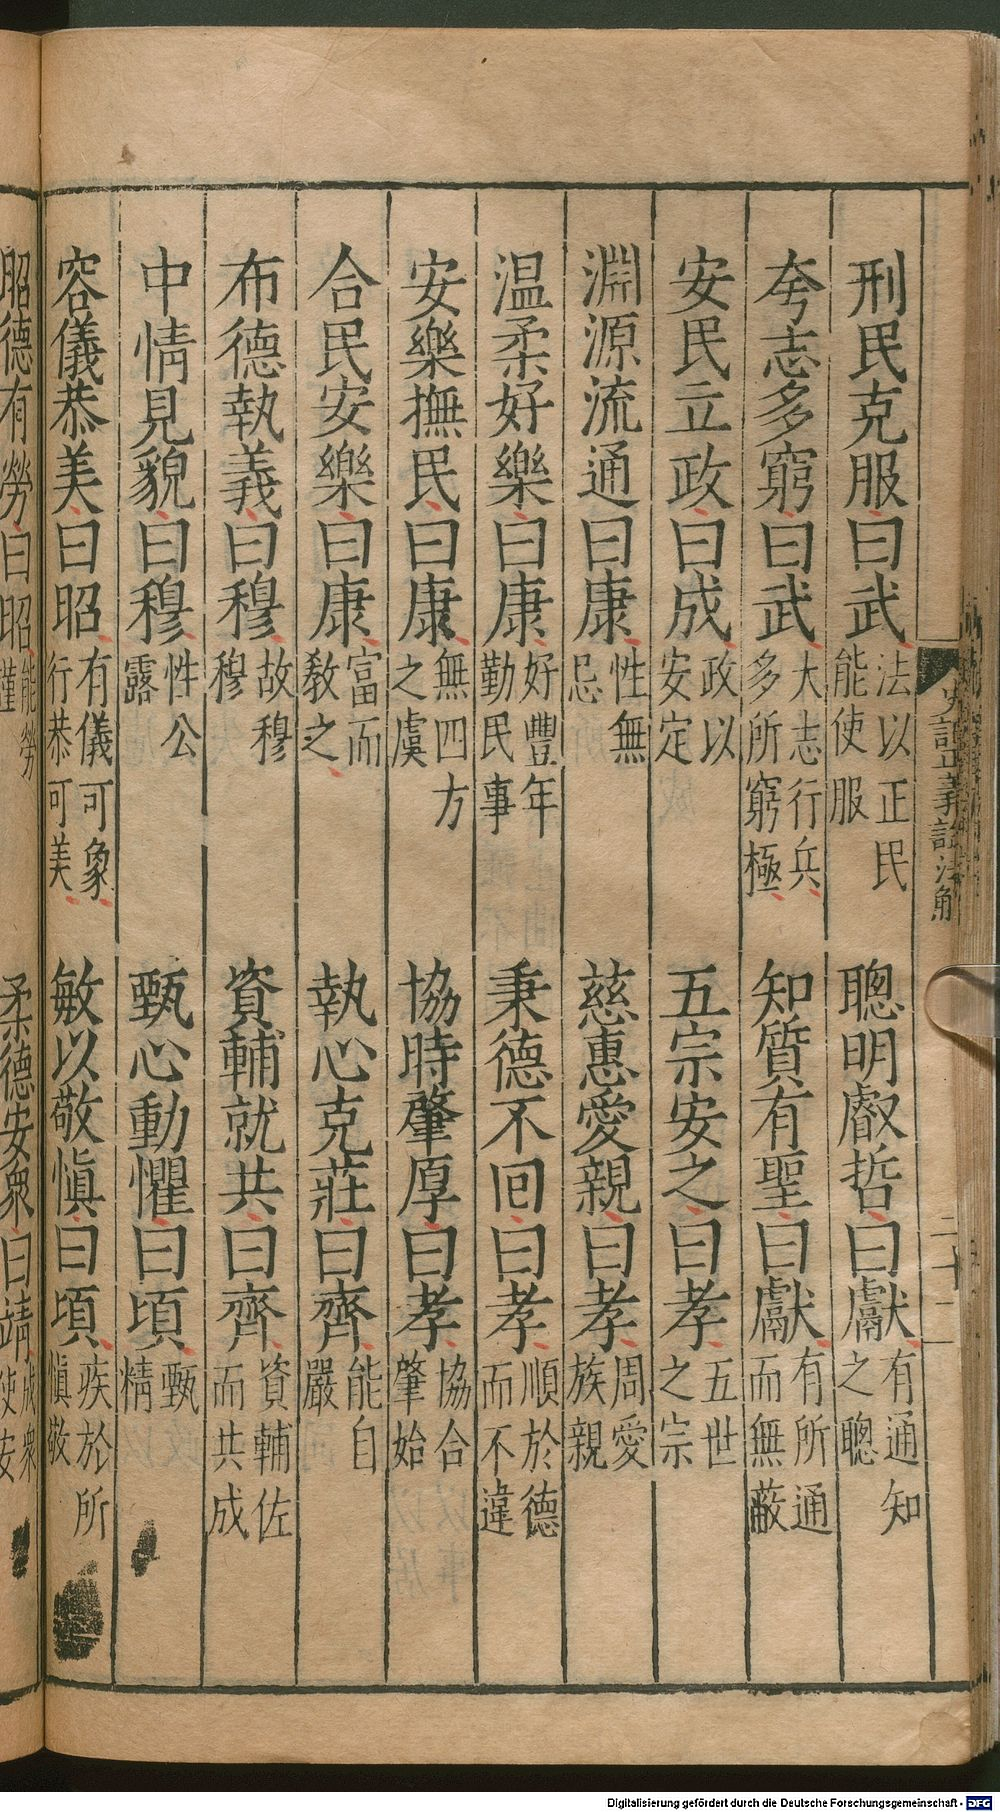 史記正義諡法解
二十二
刑民克服曰武 法以正民能使服 聰明叡哲曰獻 有通知之聰
夸志多窮曰武 大志行兵多所窮極 知質有聖曰獻 有所通而無蔽
安民立政曰成 政以安定 五宗安之曰孝 五世之宗
淵源流通曰康 性無忌 慈惠愛親曰孝 周愛族親
温柔好樂曰康 好豐年勤民事 秉德不回曰孝 順於德而不違
安樂撫民曰康 無四方之虞 協時肇厚曰孝 協合肇始
合民安樂曰康 富而敎之 執心克莊曰齊 能自嚴
布德執義曰穆 故穆穆 資輔就共曰齊 資輔佐而共成
中情見貌曰穆 性公露 甄心動懼曰頃 甄精
容儀恭美曰昭 有儀可象行恭可美 敏以敬愼曰頃 疾於所愼敬
昭德有勞曰昭 能勞謹 柔德安衆曰靖 成衆使安
Digitalisierung gefördert durch die Deutsche Forschungsgemeinschaft - DFG